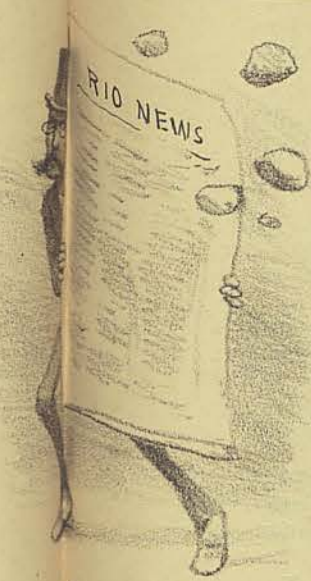 RIO NEWS